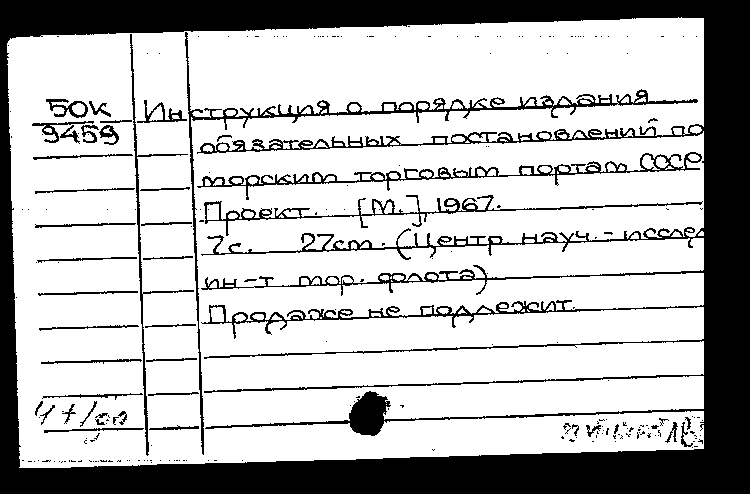 50К
9459
Инструкция о порядке издания
обязательных постановлений по
морским торговым портам СССР.
Проект. [М.], 1967.
7с. 27cm. (Центр. науч.-исслед
ин-т мор. флота)
Продаже не подлежит.